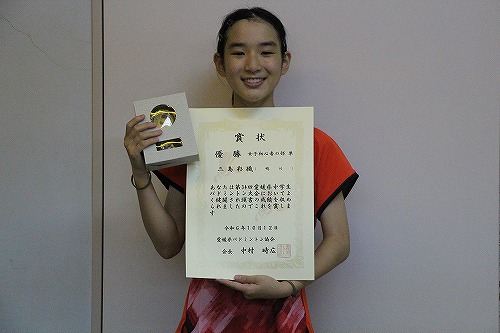 賞状
優勝 女子初心者の部 単
三島彩織
あなたは第54回愛媛県中学生
バドミントン大会において
よく健闘され頭書の成績を収め
られましたのでこれを賞します
令和6年10月12日
愛媛県バドミントン協会
会長 中村 時広